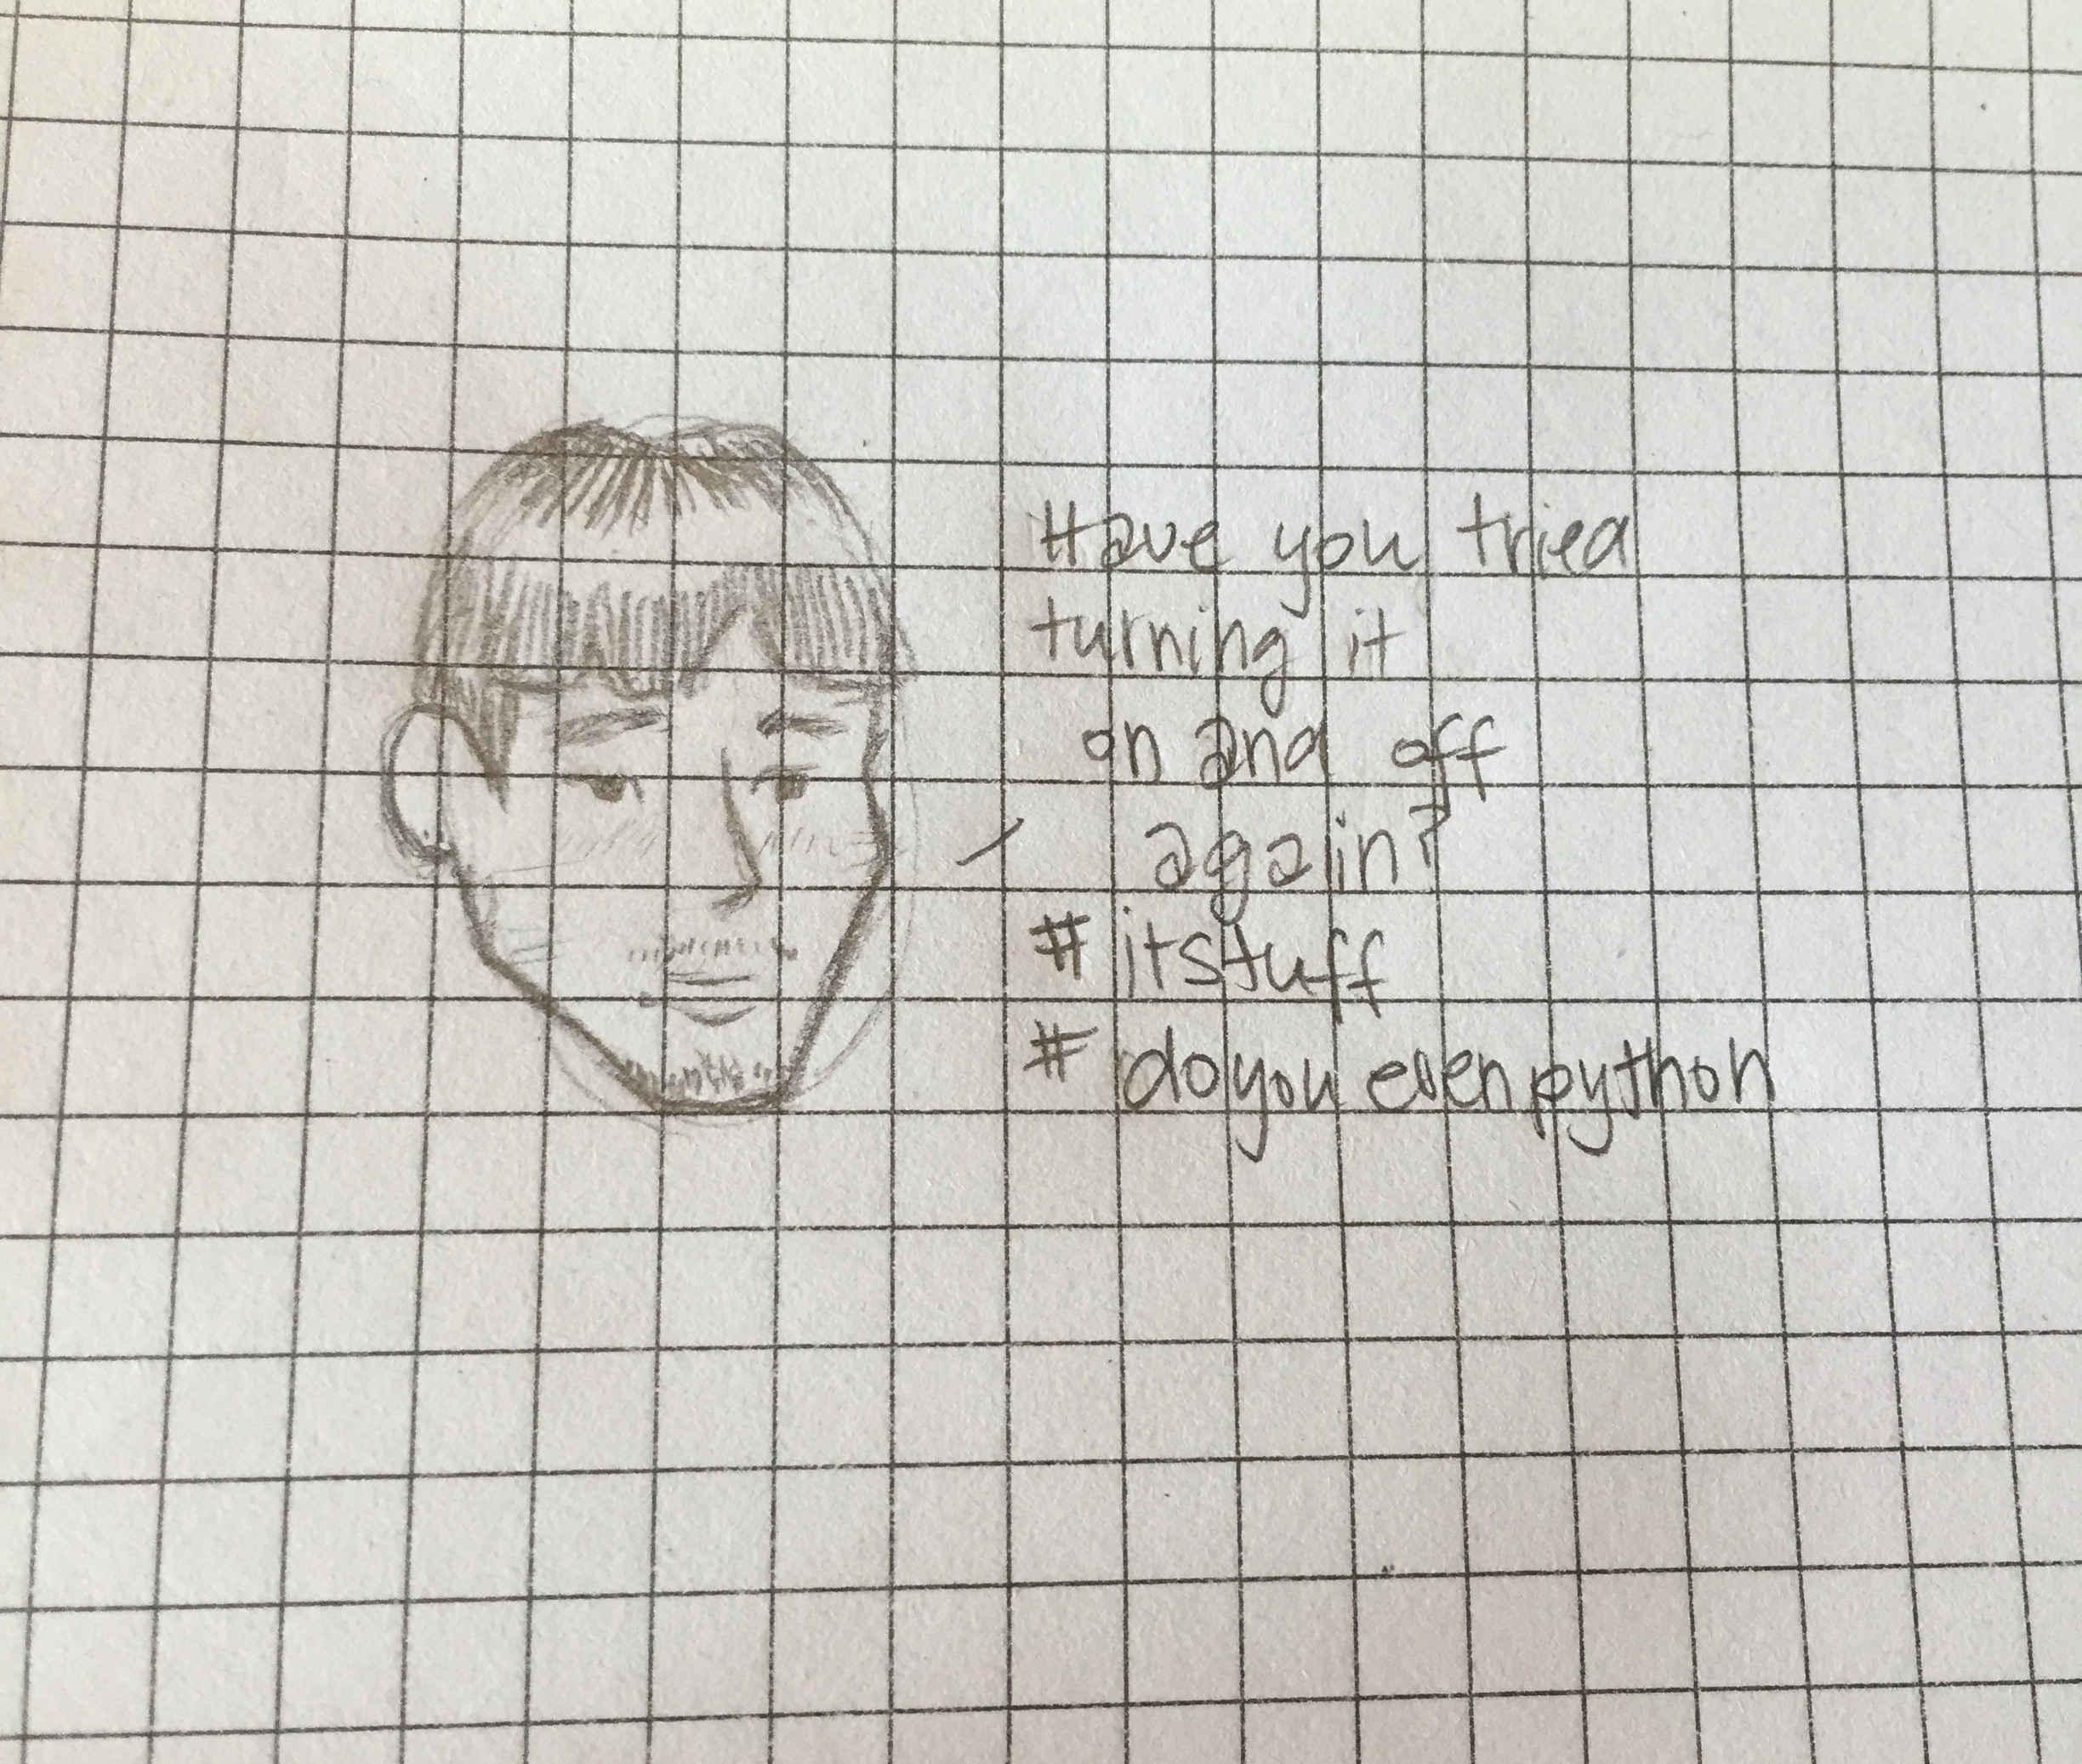 Have you tried
turning it
on and off
again?
# itstuff
# doyouevenpython